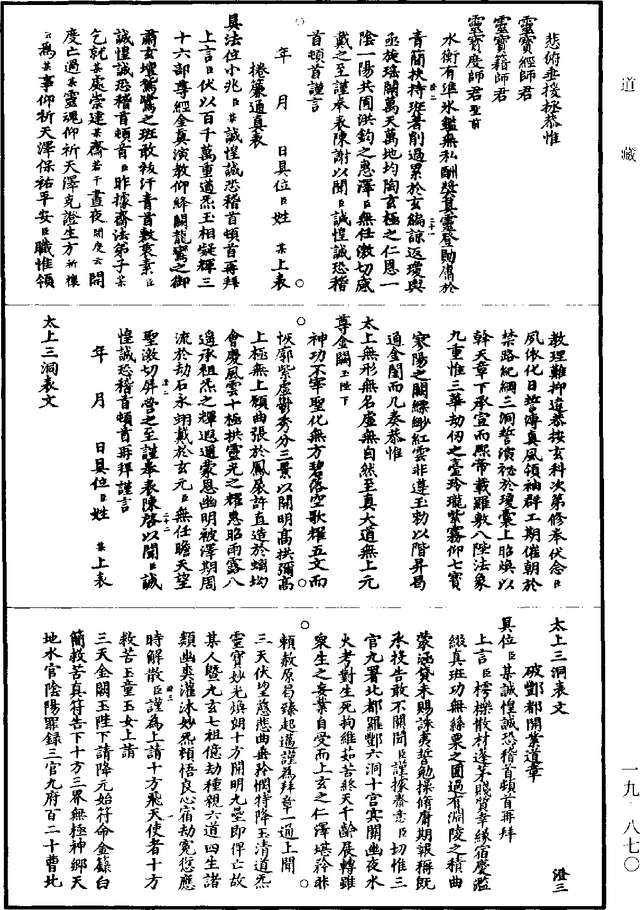 道藏
一九·八七〇
悲俯垂授拯恭惟
靈寶經師君
靈寶籍師君
靈寶度師君聖前
水衡有準氷鑑無私酬獎真靈登勛儁於
青簡扶持班著削過累於玄編諒返瓊輿
亟旋瑤闕萬天萬地均陶玄極之仁恩一
陰一陽共囿洪鈞之惠澤臣無任激切感
戴之至謹奉表陳謝以聞臣誠惶誠恐稽
首頓首謹言
年 月 日具位臣姓 某上表
捲簾通真表
具法位小兆臣某誠惶誠恐稽首頓首再拜
上言臣伏以百千萬重道炁玉相凝輝三
十六部尊經金真演教仰絳闕龍鸞之御
肅玄壇鵷鷺之班敢祓汙青首敷褁素臣
誠惶誠恐稽首頓首臣昨據齋法弟子某
乞就某處崇建某齋若干晝夜開度云開
度亡過某靈魂仰祈天澤克證生方祈禳
云為某事仰祈天澤保祐平安臣職惟領
教理難抑違恭按玄科次第修奉伏念臣
夙依化日誓傳真風領袖群工期催朝於
禁路紀綱三洞誓演祕於瓊囊上昭煥以
幹天章下承宣而熙帝載雖數八陛法象
九重惟三華劫仞之臺玲瓏紫霧仰七寶
寂陽之闕縹緲紅雲非遵玉勑以階昇曷
通金閽而几奏恭惟
太上無形無名虛無自然至真大道無上元
尊金闕玉陛下
神功不宰聖化無方碧落空歌耀五文而
恢廓紫虛鬱秀分三景以開明高拱彌高
上極無上願曲張於鳳扆許直造於螭坳
會慶風雲十極拱靈光之耀惠昭雨露八
遐承祖炁之輝遐邇蒙恩幽明被澤期周
流於劫石永翊戴於玄元臣無任瞻天望
聖激切屏營之至謹奉表陳啓以聞臣誠
惶誠恐稽首頓首再拜謹言
年 月 日具位臣姓 某上表
太上三洞表文
太上三洞表文 澄三
破酆都開業道章
具位臣某誠惶誠恐稽首頓首再拜
上言臣樗櫟散材蓬茅賤質幸緣宿慶濫
綴真班功無絲粟之圖過有淵陵之積曲
蒙涵貸未賜誅夷誓勉操脩庸期報稱旣
承投告敢不關聞臣謹據齋意臣切惟三
官九署北都羅酆六洞十宮冥關幽夜水
火考對生死拘維茹苦終天千齡展轉雖
衆生之妄業自受而上玄之仁澤堪矜非
賴赦原曷臻起邁謹為拜章一通上聞
三天伏望慈悲曲垂矜憫特降玉清道炁
靈寶妙光煥朗十方開明九壘即俾亡故
某人暨九玄七祖億劫種親六道四生諸
類幽爽灌沐妙炁頼悟良心宿劫寃愆應
時解散臣謹為上請十方飛天使者十方
救苦玉童玉女上請
三天金闕玉陛下請降元始符命金籙白
簡救苦真符告下十方三界無極神鄉天
地水官陰陽罪錄三官九府百二十曹北